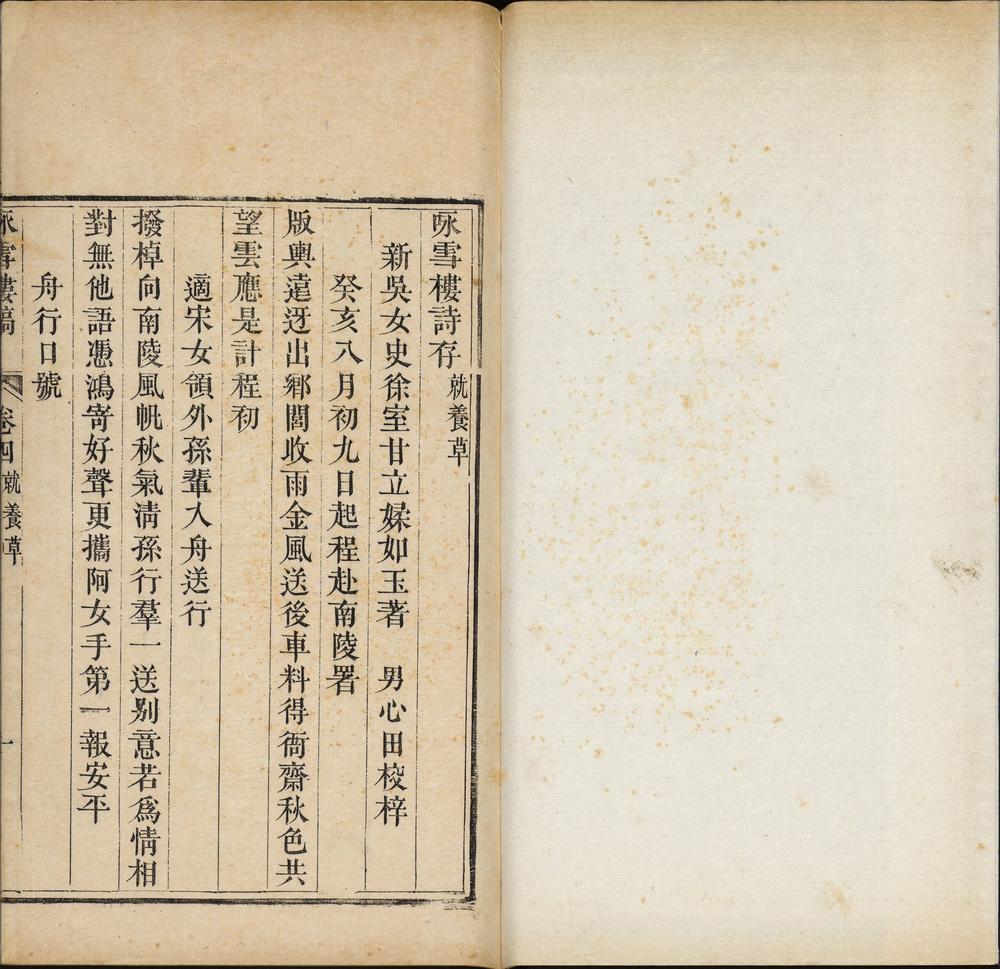 咏雪樓詩存 就養草
新吳女史徐室甘立媃如玉著　男心田校梓
癸亥八月初九日起程赴南陵署
版輿遠迓出鄉閭收雨金風送後車料得衙齋秋色共
望雲應是計程初
適宋女領外孫輩入舟送行
撥棹向南陵風帆秋氣清孫行羣一送别意若爲情相
對無他語憑鴻寄好聲更攜阿女手第一報安平
舟行口號
咏雪樓稿 卷四 就養草 一